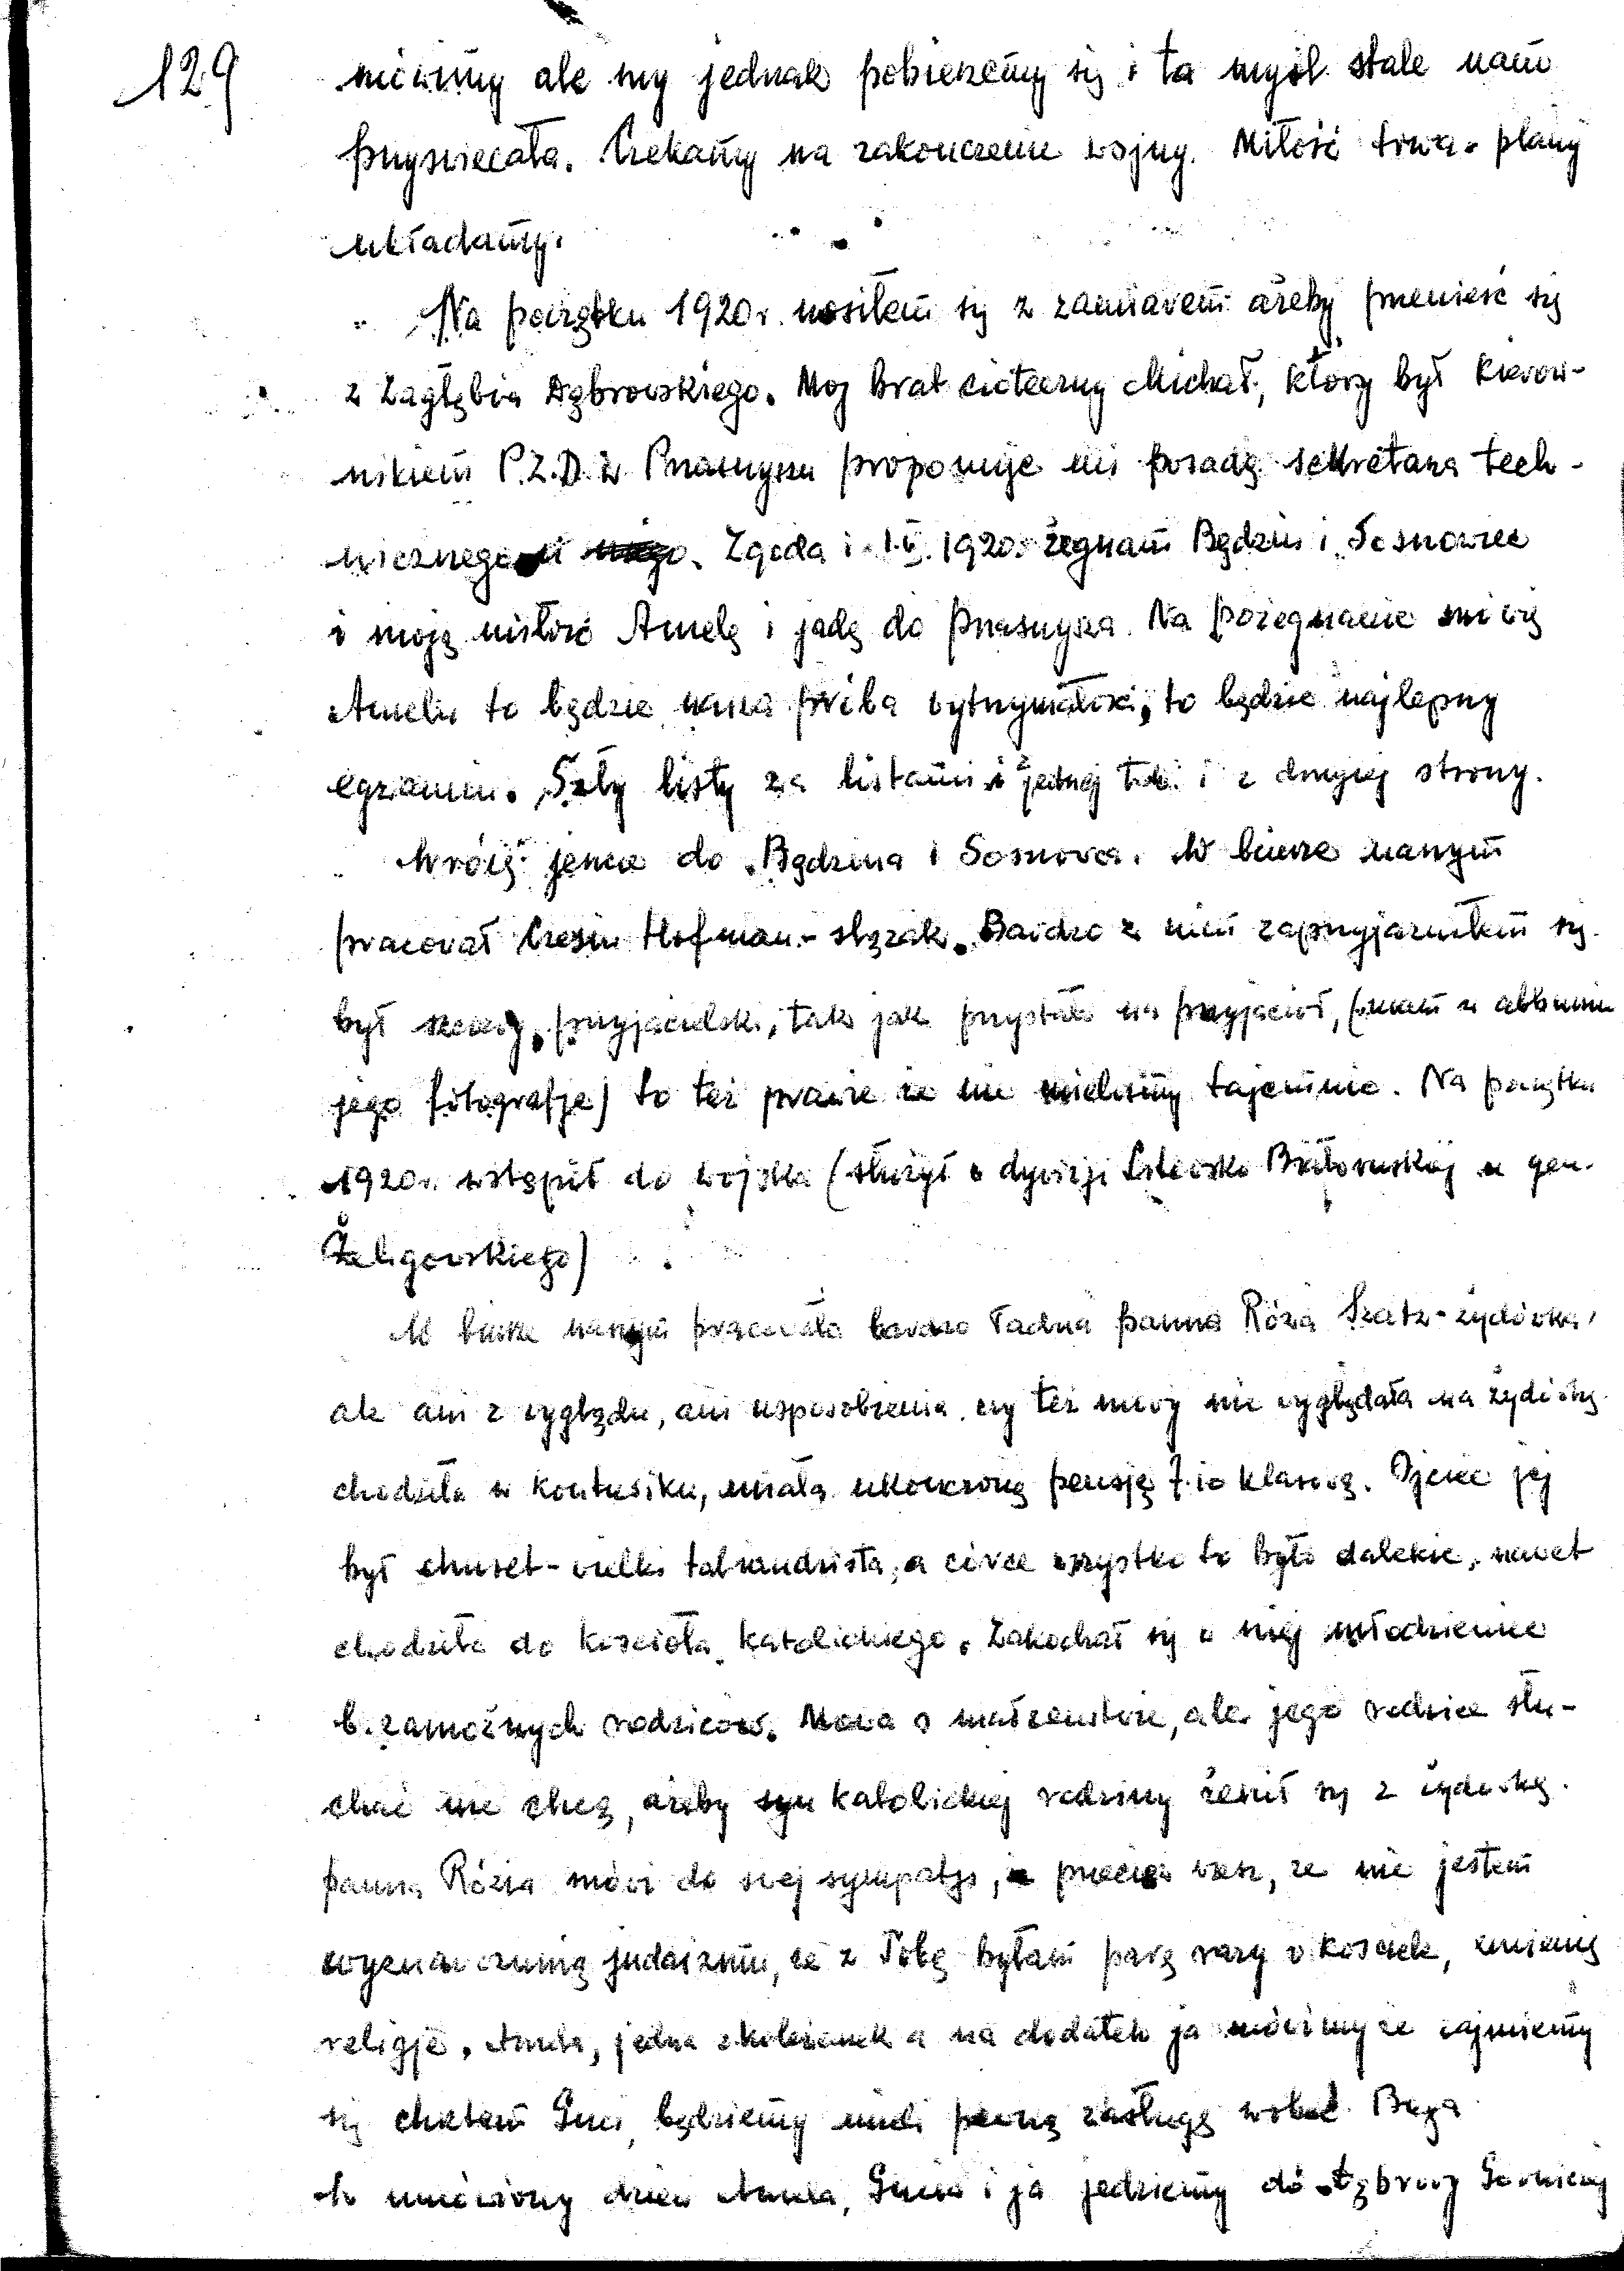 129
mówimy ale my jednak pobierzemy się i ta myśl stale nam
przyswiecała. Czekamy na zakonczenie wojny. Miłość trwa - plany
układamy.
Na początku 1920 r. nosiłem się z zamiarem ażeby przenieść się
z Zagłębia Dąbrowskiego. Moj brat cioteczny Michał, ktory był kierow-
nikiem P.Z.D. w Przasnyszu proponuje mi posadę sekretarza tech-
nicznego u niego. Zgoda i 1.V. 1920 r. żegnam Będzin i Sosnowiec
i moją miłość Amelę i jadę do Przasnysza. Na pożegnanie mówię
Amelu to będzie nasza próba wytrzymałości, to będzie najlepszy
egzamin. Szły listy za listami z jednej tak i z drugiej strony.
Wrócę jeszcze do Będzina i Sosnowca. W biurze naszym
pracował Czesiu Hofman - slązak. Bardzo z nim zaprzyjazniłem się.
był szczery, przyjacielski, tak jak przystało na przyjaciół, (mam w albumie
jego fotografje) to też prawie że nie mielismy tajemnic. Na początku
1920 r. wstąpił do wojska (służył w dywizji Litewsko Białoruskiej u gen.
Żeligowskiego)
W biurze naszym pracowała bardzo ładna panna Rózia Szatz - żydówka,
ale ani z wyglądu, ani usposobienia, czy też mowy nie wyglądała na żydówkę.
chodziła w kontusiku, miała ukończoną pensję 7-io klasową. Ojciec jej
był chuset - wielki talmudzista, a córce wszystko to było dalekie, nawet
chodziła do kościoła katolickiego. Zakochał się w niej młodzieniec
b. zamożnych rodziców. Mowa o małżenstwie, ale jego rodzice słu-
chać nie chcą, ażeby syn katolickiej rodziny żenił się z żydówką.
panna Rózia mówi do swej sympatji, przecież wiesz, że nie jestem
wyznawczynią judaizmu, że z Tobą byłam parę razy w kosciele, zmienię
religje. Amela, jedna z koleżanek a na dodatek ja mówimy że zajmiemy
się chrztem będziemy mieli pewną zasługę wobec Boga.
W umówiony dzień Amela, i ja jedziemy do Dąbrowy Górniczej